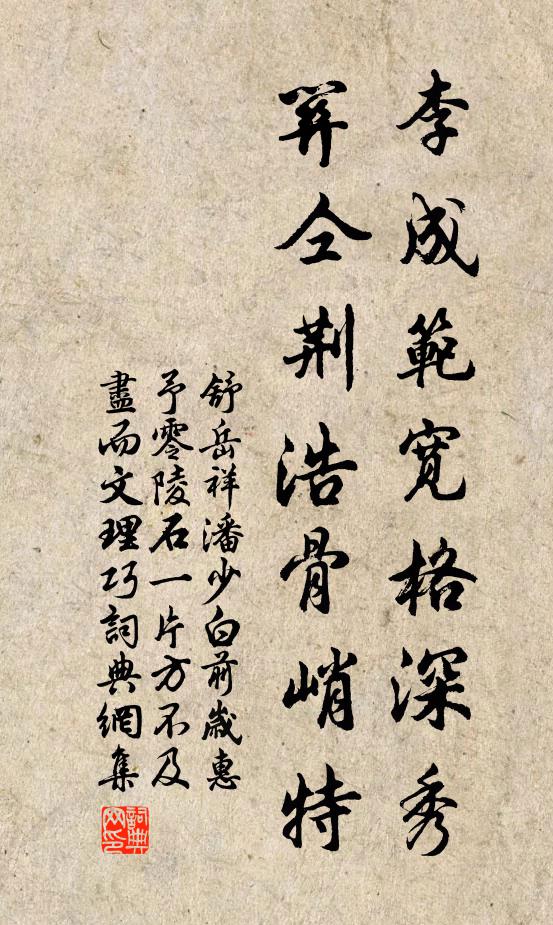 李成範寬格深秀
關仝荆浩骨峭特
舒岳祥潘少白前歲惠
予零陵石一片方不及
盡而文理巧詞典網集
詞典網印